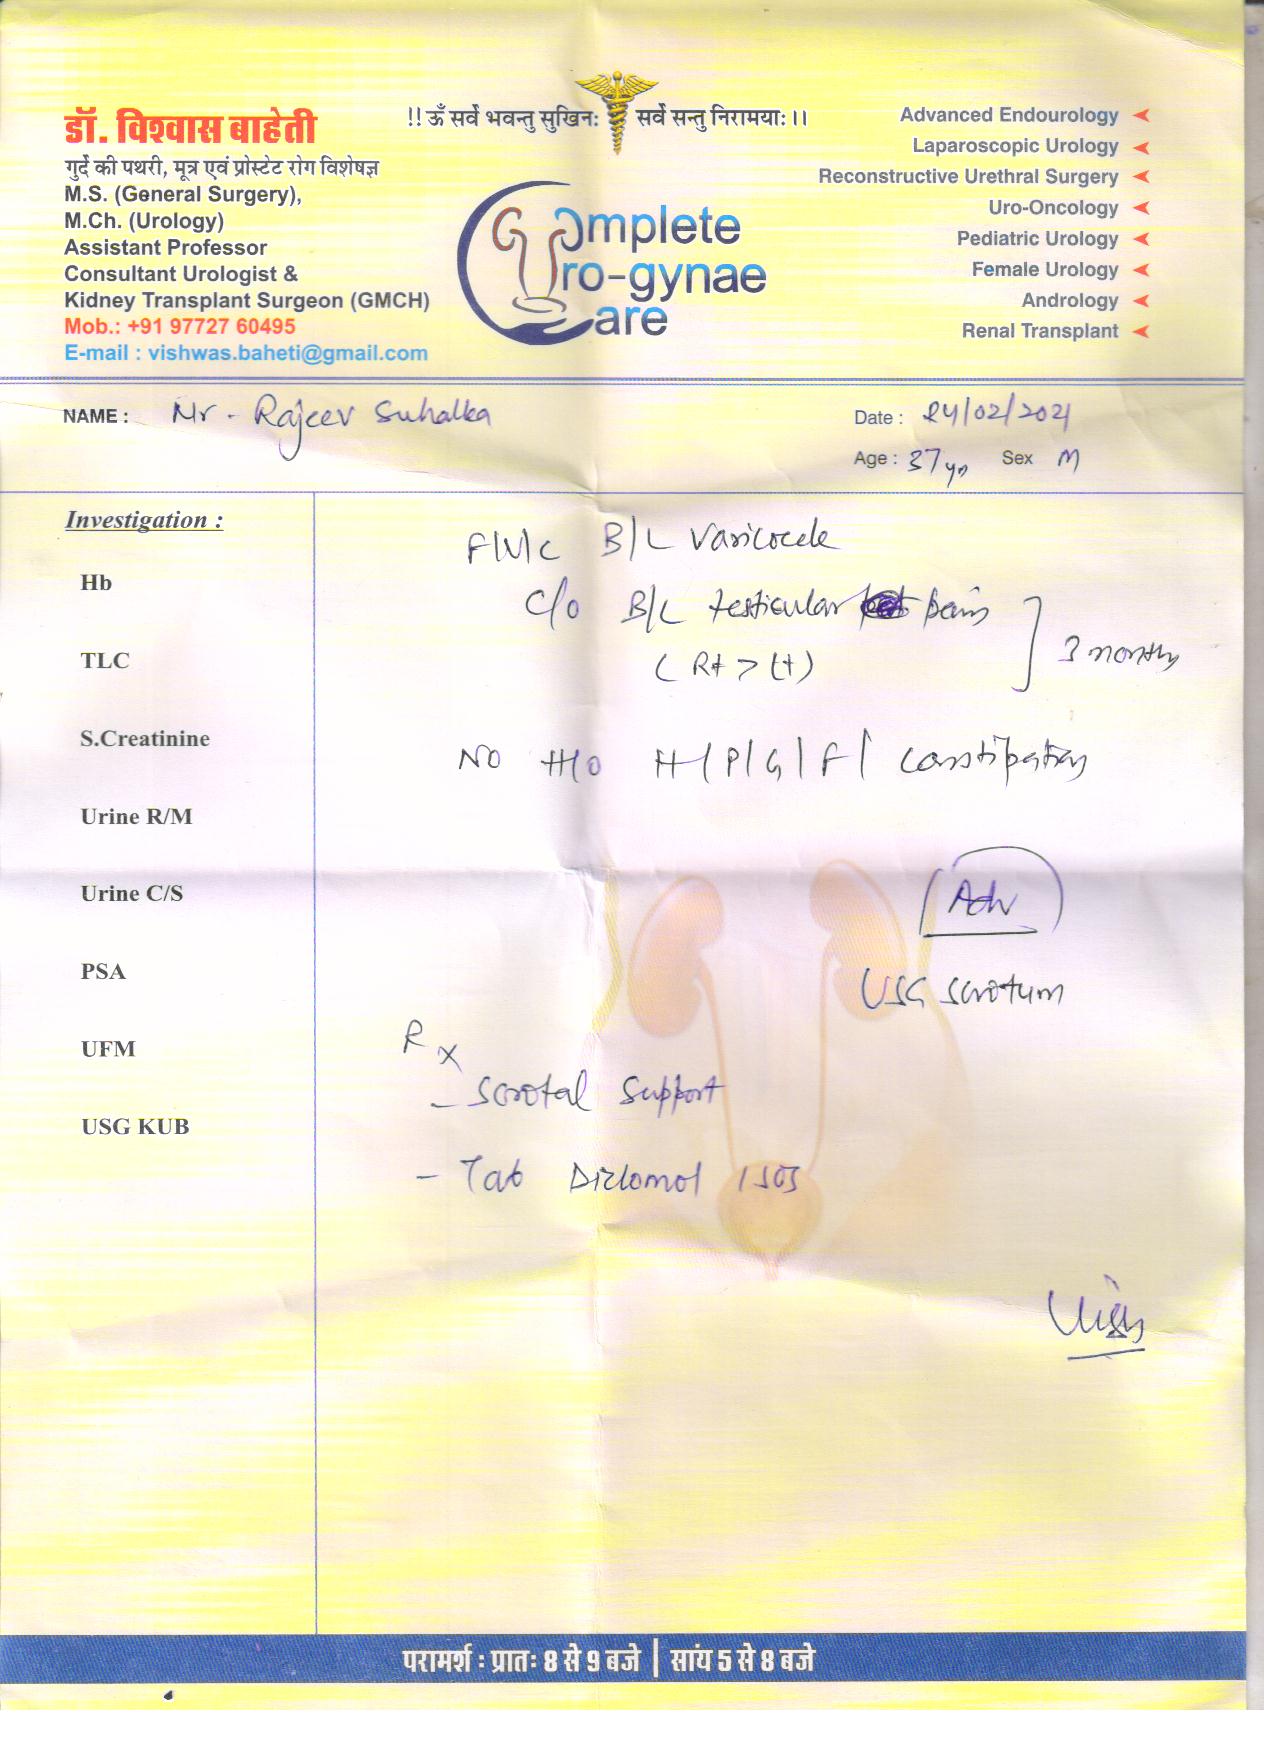 !! ॐ सर्वे भवन्तु सुखिनः सर्वे सन्तु निरामयाः ।।
डॉ. विश्वास बाहेती
गुर्दे की पथरी, मूत्र एवं प्रोस्टेट रोग विशेषज्ञ
M.S. (General Surgery),
M.Ch. (Urology)
Assistant Professor
Consultant Urologist &
Kidney Transplant Surgeon (GMCH)
Mob.: +91 97727 60495
E-mail : vishwas.baheti@gmail.com
Complete
Uro-gynae
Care
Advanced Endourology
Laparoscopic Urology
Reconstructive Urethral Surgery
Uro-Oncology
Pediatric Urology
Female Urology
Andrology
Renal Transplant
NAME : Mr - Rajeev Suhalka
Date : 24/02/2021
Age : 37 yr Sex M
Investigation :
Hb
TLC
S.Creatinine
Urine R/M
Urine C/S
PSA
UFM
USG KUB
B/L Varicocele
C/O B/L testicular pain
(Rt > Lt)
3 months
NO H/O H/P/G/F/ Constipation
Adv
USG Scrotum
Rx
- Scrotal Support
- Tab Diclomol
परामर्श : प्रातः 8 से 9 बजे | सांय 5 से 8 बजे